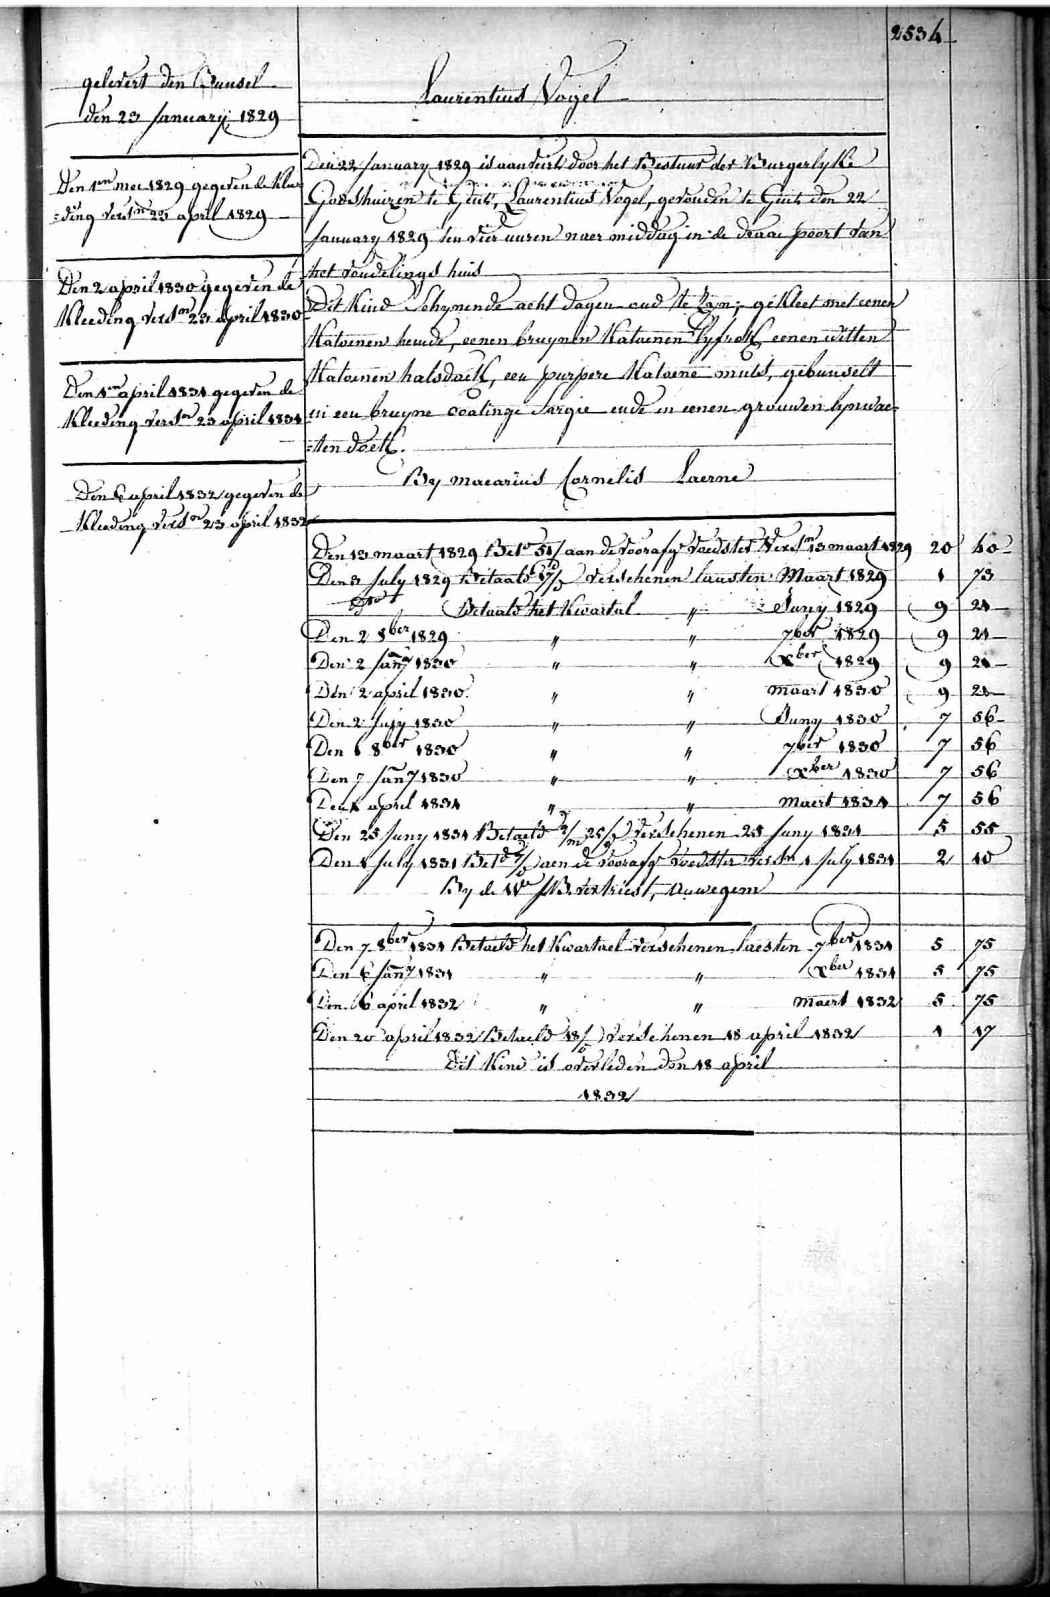 2534
gelevert den Bunsel
den 23 January 1829
Den 1en mei 1829 gegeven de klee
=ding versen 23 april 1829
Den 2 april 1830 gegeven de
Kleeding versen 23 april 1830
Den 1en april 1831 gegeven de
Kleeding versen 23 april 1831
Den 6 april 1832 gegeven de
Kleeding versen 23 april 1832
Laurentius Vogel
Den 22 January 1829 is aanveirt door het Bestuur der Burgerlyke
Godshuizen te Gent, Laurentius Vogel, gevonden te Gent den 22
January 1829 ten vier uuren naer middag in de draae poort van
het vondelings huis
Dit Kind schynende acht dagen oud te zyn; gekleet met eenen
Katoenen hemde, eenen bruynen Katoenen lyfrok, eenen witten
Katoenen halsdoek, een purpere Katoene muts, gebunselt
in een bruyne coatinge sargie ende in eenen grouwen lynwae=
=ten doek.
By macarius Cornelis Laerne
Den 13 maart 1829 Bet 51/ aan de voorafge voedster Versen 13 maart 1829 20 40
Den 3 July 1829 Betaald 17/ verschenen laasten Maart 1829 1 73
Betaald het Kwartal " Juny 1829 9 21
Den 2 8ber 1829 " " 7ber 1829 9 21
Den 2 Jany 1830 " " Xber 1829 9 21
Den 2 april 1830 " " maart 1830 9 21
Den 2 July 1830 " " Juny 1830 7 56
Den 6 8ber 1830 " " 7ber 1830 7 56
Den 7 Jany 1830 " " Xber 1830 7 56
Den 1 april 1831 " " Maert 1831 7 56
Den 25 Juny 1831 Betaeld 2/m 25/ verschenen 25 Juny 1831 5 55
Den 1 July 1831 Beta aen de voorafge voedster Versen 1 July 1831 2 10
By de We JB. Verkriest, auwegem
Den 7 8ber 1831 Betaeld het Kwartael verschenen laesten 7ber 1831 5 75
Den 6 Jany 1831 " " Xber 1831 5 75
Den 6 april 1832 " " maert 1832 5 75
Den 20 april 1832 Betaeld 18/ Verschenen 18 april 1832 1 17
Dit Kind is overleden den 18 april
1832